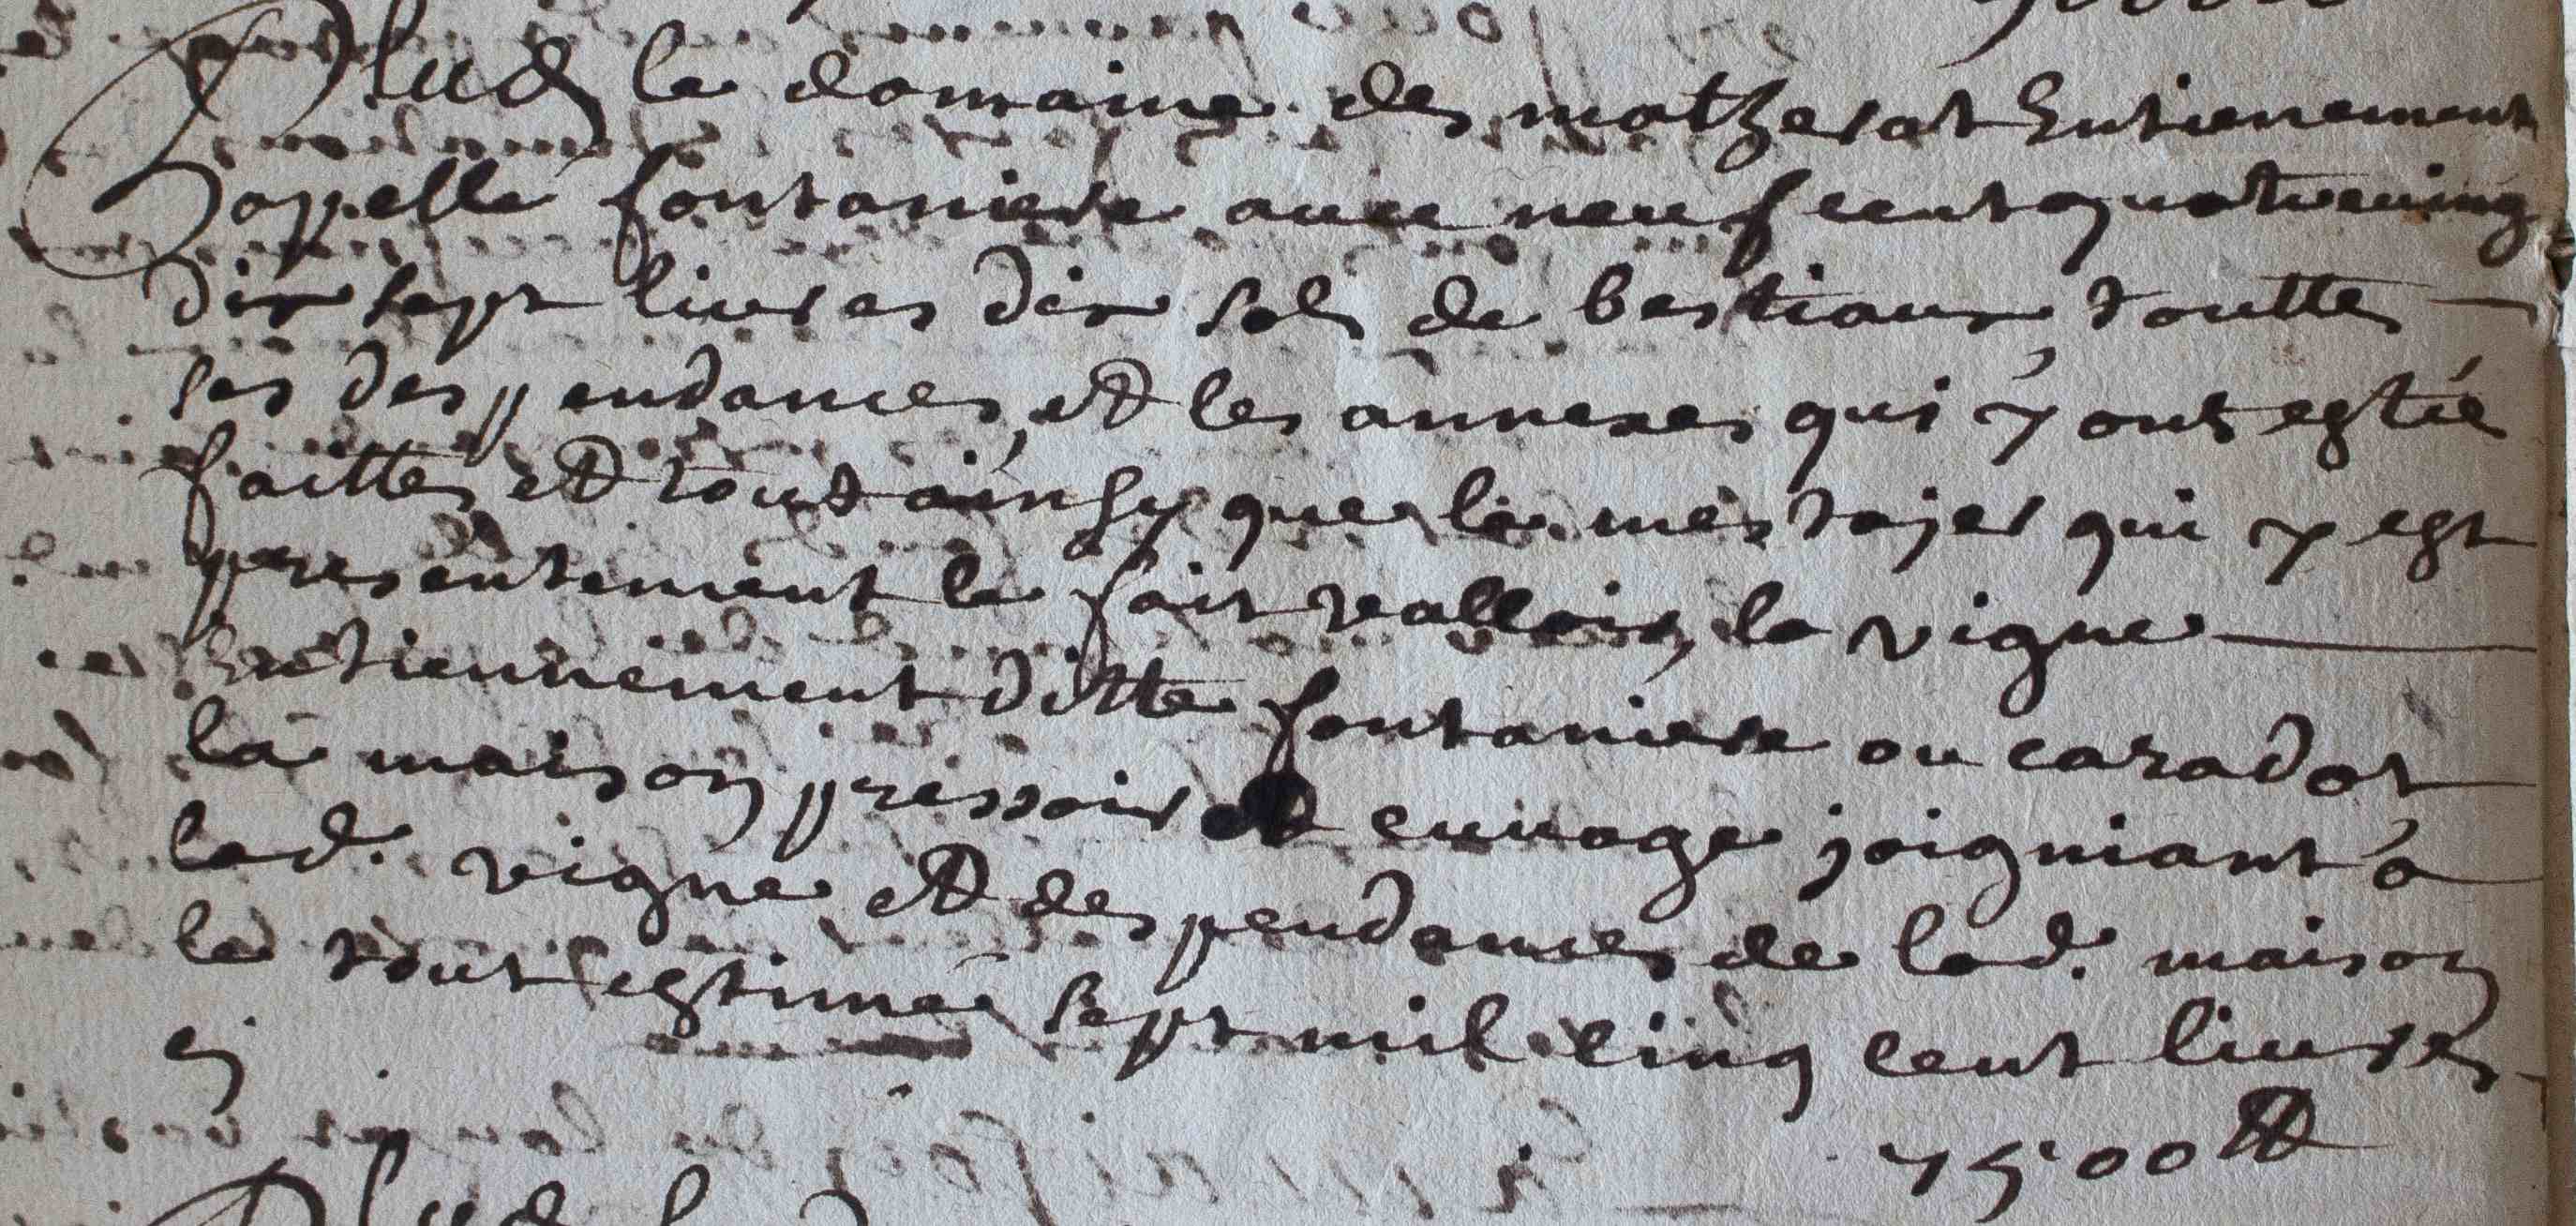 Plus le domaine de matherat Entienement
apellé fontaniere avec neuf cent quatre vingt
dix sept livres dix sols de bestiaux touttes
ses despendances et les annexes qui y ont estée
faittes et tout ainsy que le mestajer qui y est
presentement le fait valloir, la vigne
Entiennement ditte fontaniere ou caradot
la maison pressoir et cuvage joigniant a
lad. vigne et despendances de lad. maison
le tout estimé sept mil cinq cent livres
cy
7500 ₶
Plus